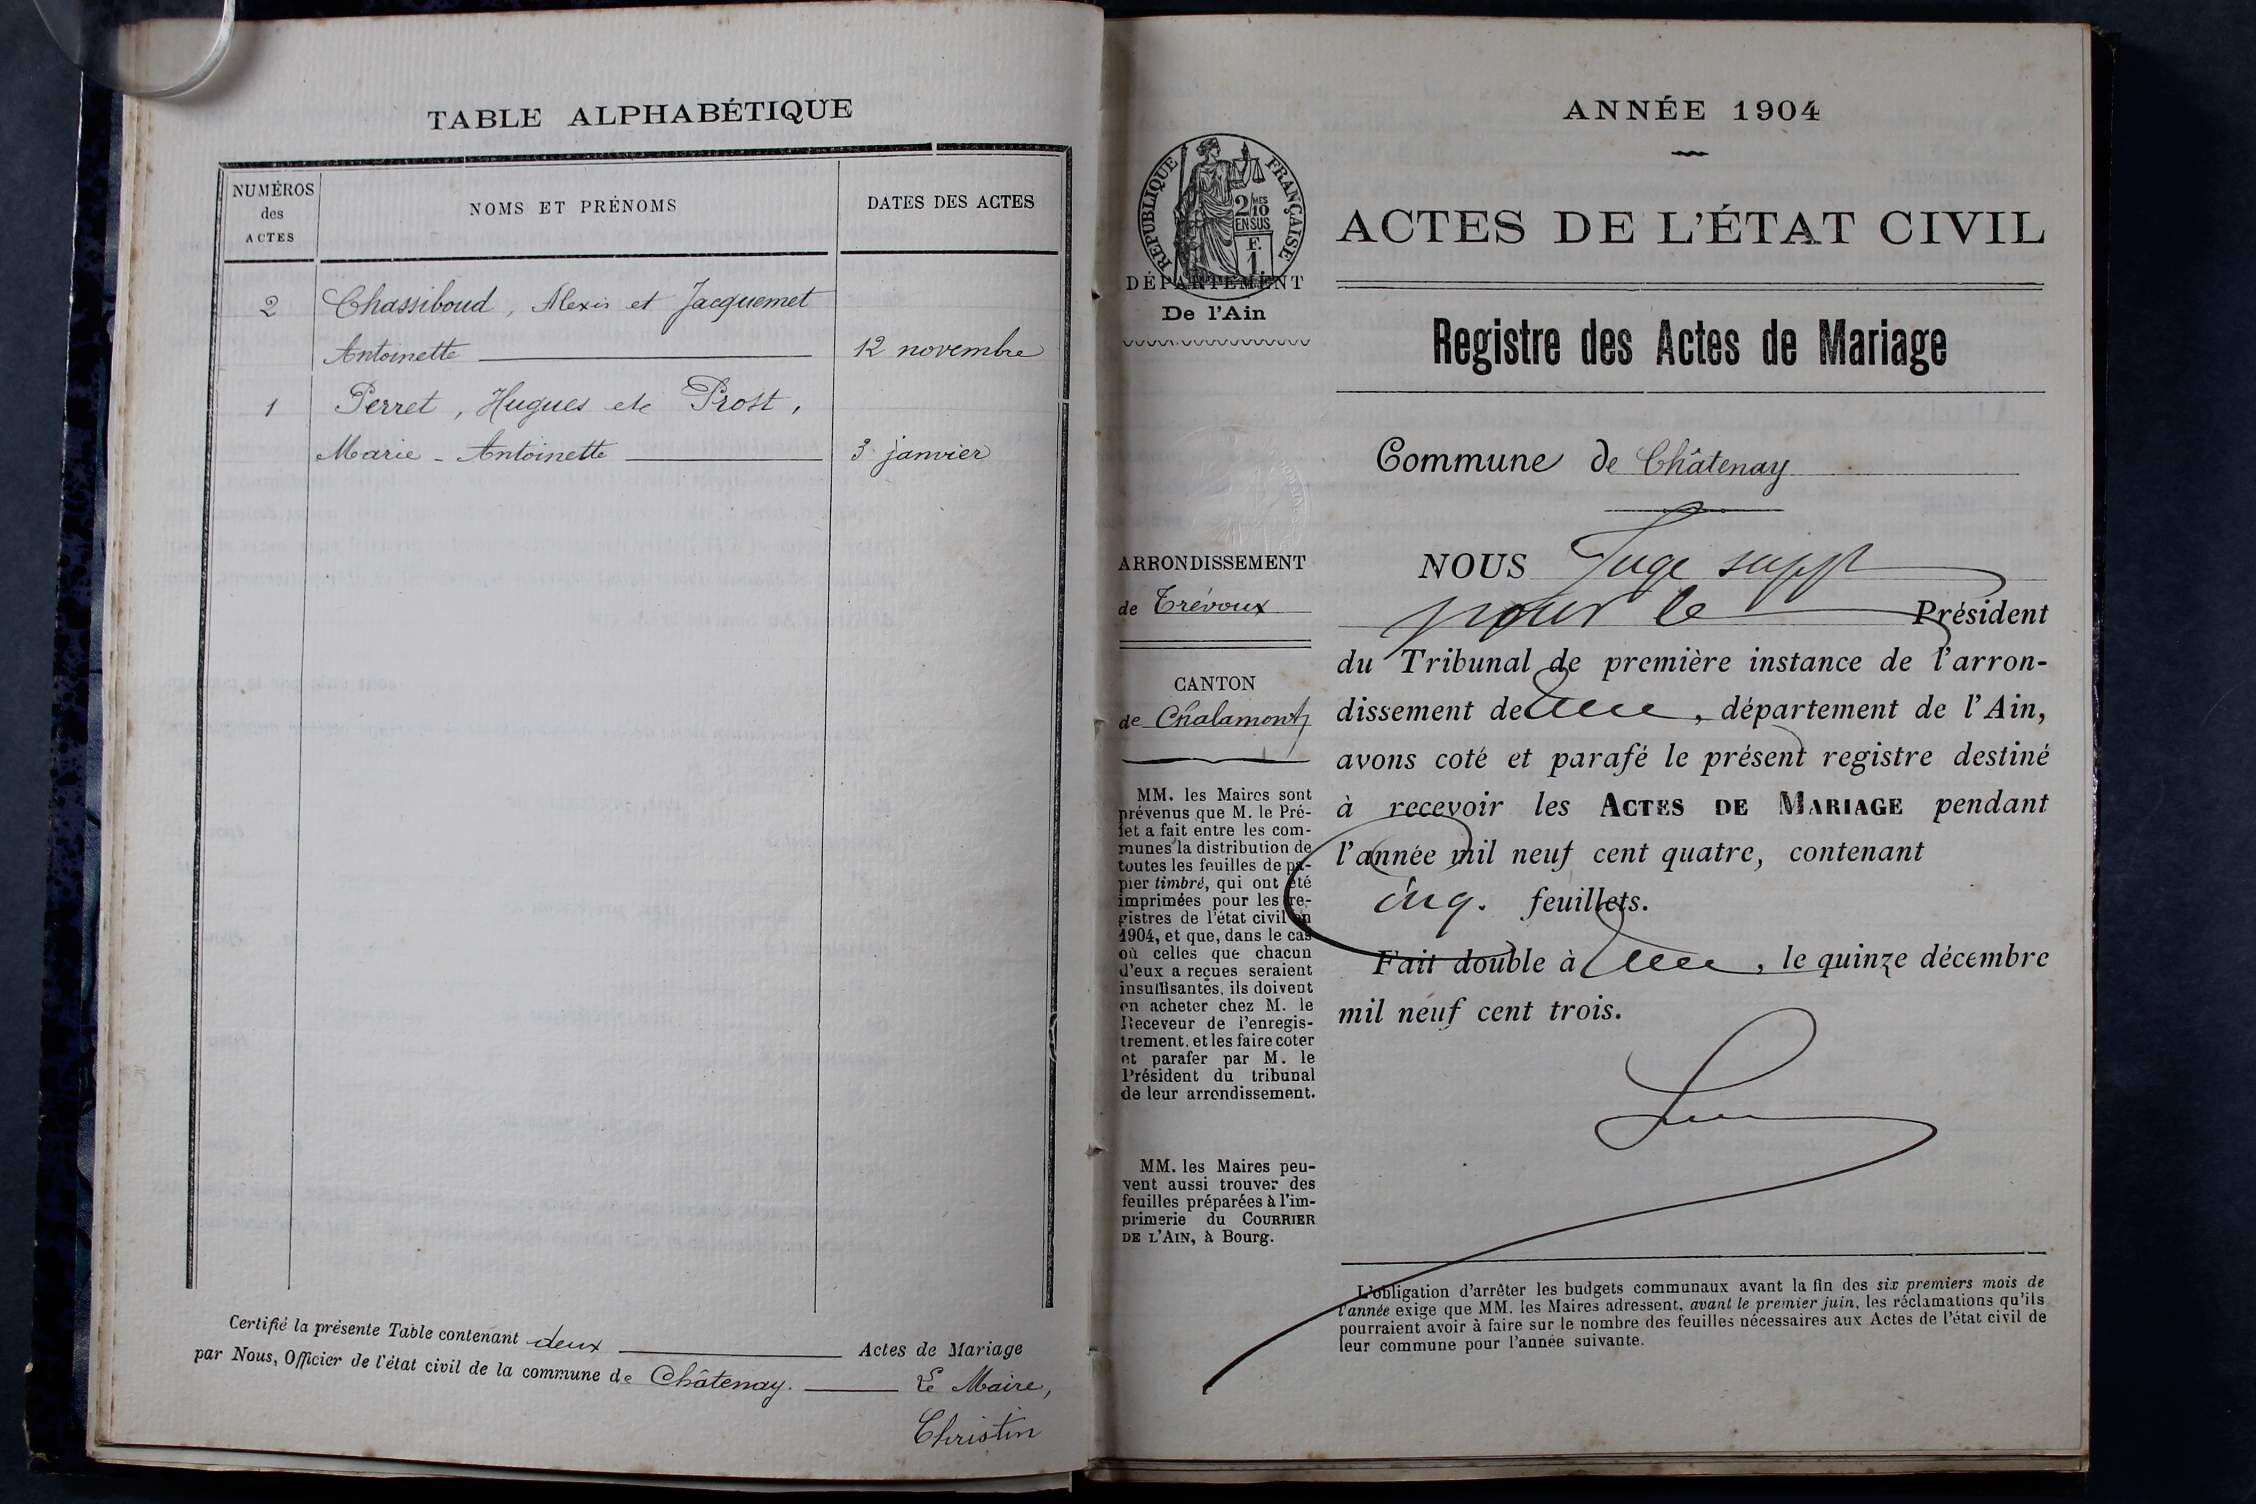 TABLE ALPHABÉTIQUE
NUMÉROS
des
ACTES
NOMS ET PRÉNOMS
DATES DES ACTES
2 Chassiboud, Alexis et Jacquemet
Antoinette 12 novembre
1 Perret, Hugues et Prost,
Marie-Antoinette 3 janvier
Certifié la présente Table contenant deux Actes de Mariage
par Nous, Officier de l'état civil de la commune de Châtenay. Le Maire,
Christin
ANNÉE 1904
RÉPUBLIQUE FRANÇAISE
2/10 MES
EN SUS
F.
1
DÉPARTEMENT
De l'Ain
ARRONDISSEMENT
de Trévoux
CANTON
de Chalamont
MM. les Maires sont
prévenus que M. le Pré-
fet a fait entre les com-
munes la distribution de
toutes les feuilles de pa-
pier timbré, qui ont été
imprimées pour les re-
gistres de l'état civil en
1904, et que, dans le cas
où celles que chacun
d'eux a reçues seraient
insuffisantes, ils doivent
en acheter chez M. le
Receveur de l'enregis-
trement, et les faire coter
et parafer par M. le
Président du tribunal
de leur arrondissement.
MM. les Maires peu-
vent aussi trouver des
feuilles préparées à l'im-
primerie du COURRIER
DE L'AIN, à Bourg.
ACTES DE L'ÉTAT CIVIL
Registre des Actes de Mariage
Commune de Châtenay
NOUS Juge suppt
pour le Président
du Tribunal de première instance de l'arron-
dissement de , département de l'Ain,
avons coté et parafé le présent registre destiné
à recevoir les ACTES DE MARIAGE pendant
l'année mil neuf cent quatre, contenant
cinq. feuillets.
Fait double à , le quinze décembre
mil neuf cent trois.
L'obligation d'arrêter les budgets communaux avant la fin des six premiers mois de
l'année exige que MM. les Maires adressent, avant le premier juin, les réclamations qu'ils
pourraient avoir à faire sur le nombre des feuilles nécessaires aux Actes de l'état civil de
leur commune pour l'année suivante.